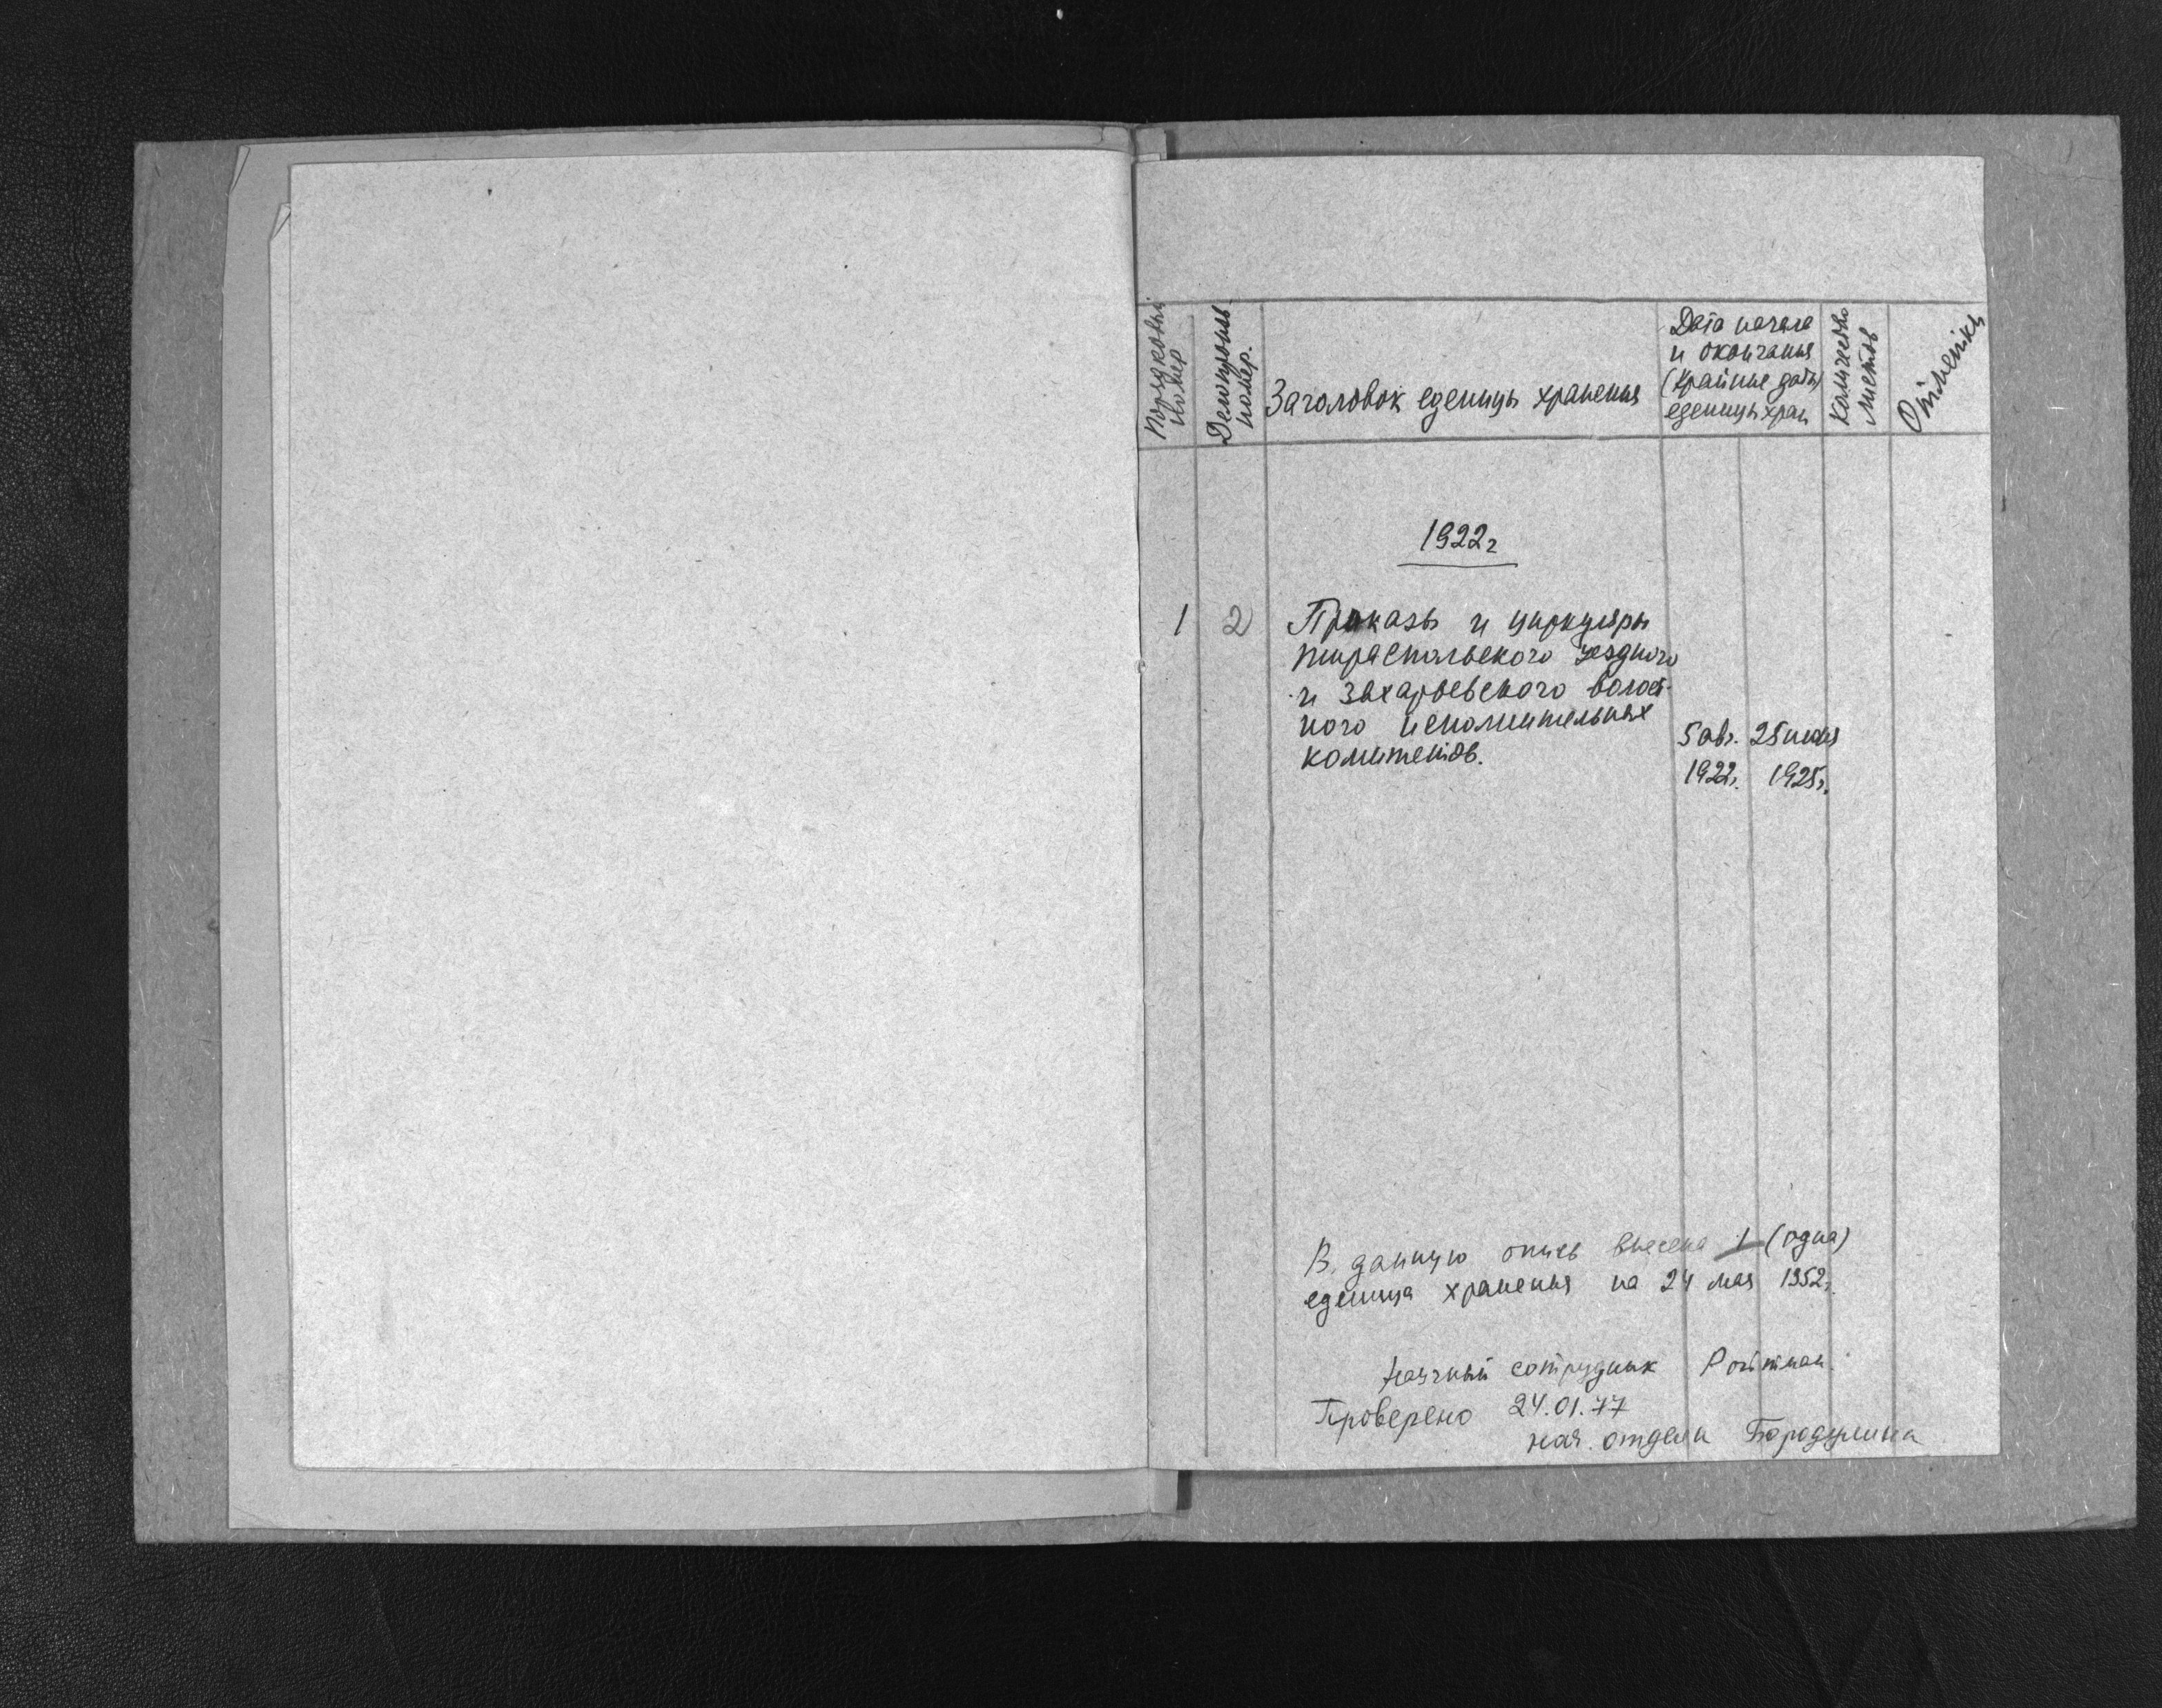 Порядковый
номер
номер.
Заголовок еденицы хранения
Дата начала
и окончания
(крайние даты)
еденицы хран
Количество
листов
Отметки
1922г
1 2 Приказы и циркуляры
тираспольского уездного
и захарьевского волост-
ного исполнительных
комитетов.
5 авг. 25 июня
1922г. 1925г.
В данную опись внесена 1 (одна)
еденица хранения на 24 мая 1952г.
Научный сотрудник Ройтман
Проверено 24.01.77
нач. отдела Бородулина